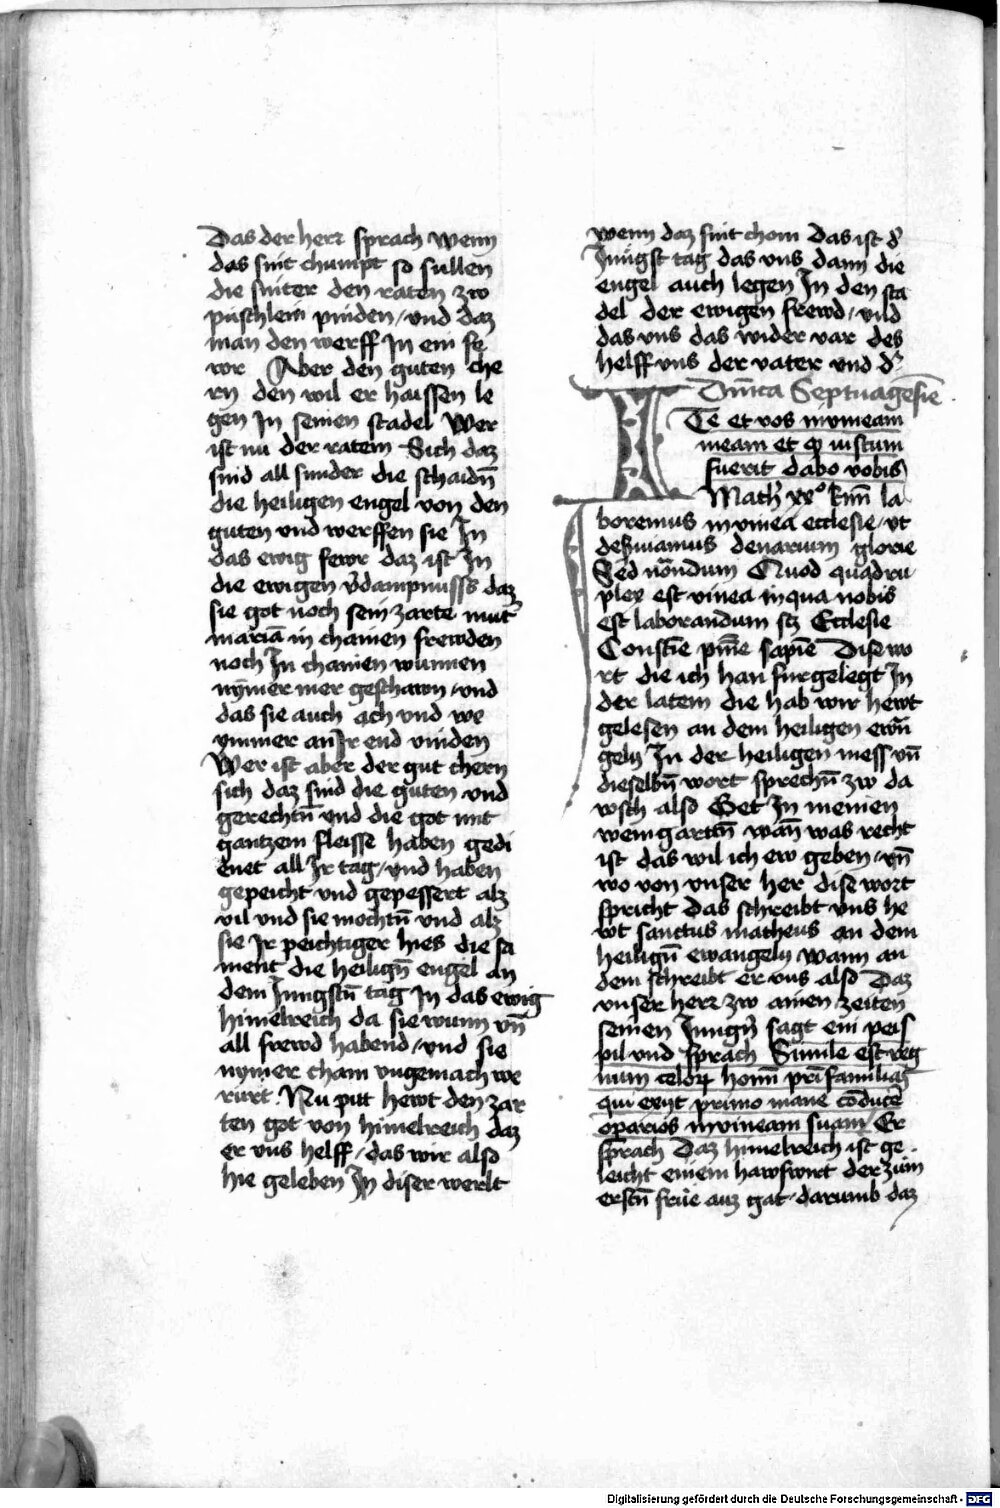 Das der herr sprach wenn
das snit chumpt so sullen
die sniter den raten zw
puschlein pinden / und daz
man den werff In ein fe
wr Aber den guten che
rn den wil er haissen le
gen In seinen stadel Wer
ist nu der ratem Sich daz
sind all sunder die schaidn̄
die heiligen engel von den
guten vnd werffen sie In
das ewig fewr daz ist In
die ewigen v̉dampnusss daz
sie got noch sein zarte mut̉
mariā in chainen frewden
noch In chainen wunnen
nymer mer geschawn / vnd
das sie auch ach vnd we
ymmer an Ir end vinden
Wer ist aber der gut chern
sich daz sind die guten vnd
gerechtn̄ vnd die got mit
gantzem fleisse haben gedi
enet all Ir tag / vnd haben
gepeicht vnd gepessert alz
vil vnd sie mochtn̄ vnd alz
sie Ir peichtiger hies die sa
ment die heilign̄ engel an
dem Jungstn̄ tag In das ewig
himelreich da sie wunn vn̄
all frewd habend / vnd sie
nymer cham vngemach we
rürt . Nu pitt hewt den zar
ten got von himelreich daz
er vns helff / das wir also
hie geleben In diser werlt
wenn daz snit chom das ist d̉
Jungst tag das vns dann die
engel auch legen In den sta
del der ewigen frewd / vnd
das vns das wider var des
helff vns der vater vnd d̉
Dn̄ica Septuagesīe .
ITe et vos in vineam
meam et qͥ iustum
fuerit dabo vobis
Math̉ xxº km̄ la
boremus in vinea ecclesie / vt
des̉uiamus denarium glorie
Sed nōndum Quod quadru
plex est vinea in qua nobis
est laborandum scz Ecclesie
Consc̄ie pn̄īe sapīe Dise wo
rt die ich han furgelegt In
der latein die hab wir hewt
gelesen an dem heiligen ewā
gelӱ In der heiligen mess vn̄
dieselbn̄ wort sprechn̄ zw da
wsch also Get In meinen
weingartn̄ wan̄ was recht
ist das wil ich ew geben / vn̄
wo von vnser her dise wort
spricht das schreibt vns he
wt sanctus matheus an dem
heilign̄ ewangelӱ / wann an
dem schreibt er vns also Daz
vnser herr zw ainen zeiten
seinen Jungn̉ sagt ein peis
pil vnd sprach Simile est reg
num celoꝝ homī pr̄ifamilias
qui exijt primo mane cōducer̉
operarios in vineam suam / Er
sprach Daz himelreich ist ge
leicht einem hawswirt der zum
erstn̄ frůe auz gat / darumb daz
Digitalisierung gefördert durch die Deutsche Forschungsgemeinschaft - DFG